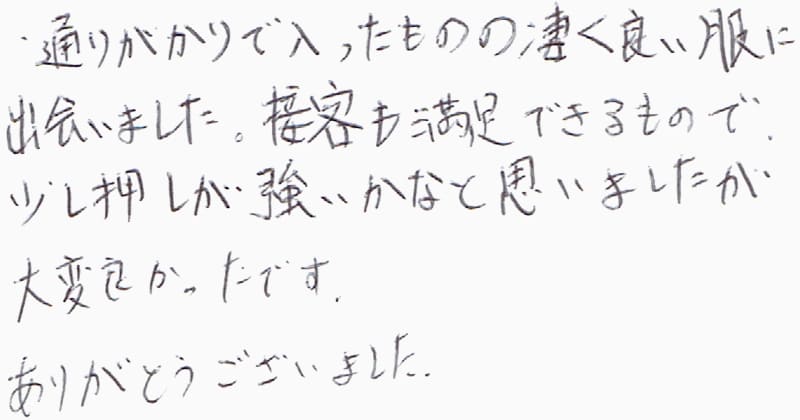 ・通りがかりで入ったものの凄く良い服に
出会いました。接客も満足できるもので、
少し押しが強いかなと思いましたが
大変良かったです.
ありがとうございました.